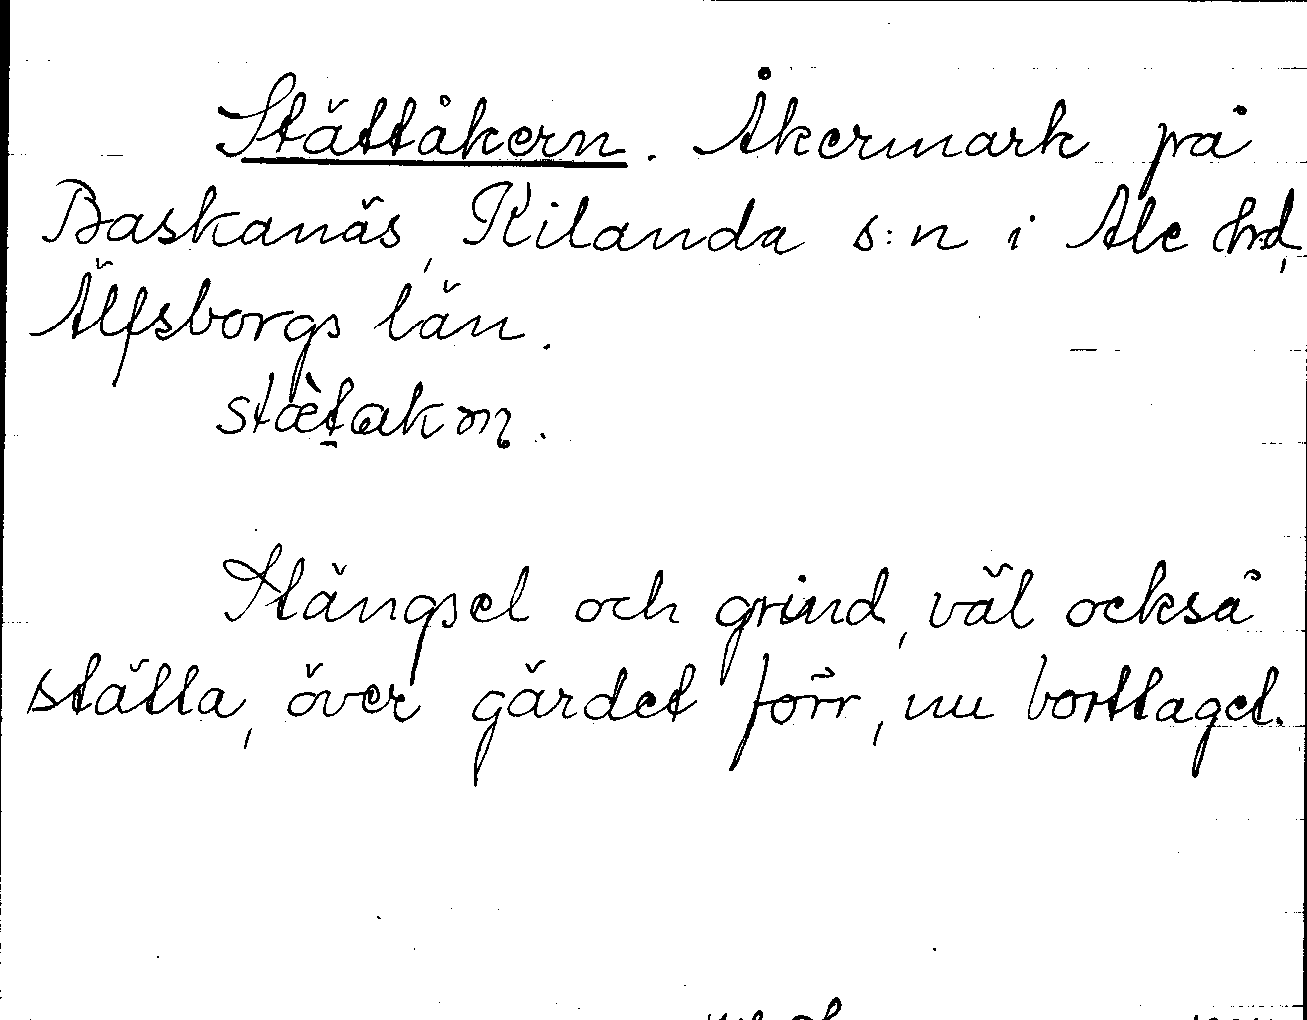 Stättåkern. Åkermark på
Baskanäs, Kilanda s:n i Ale hd,
Älfsborgs län.
stæ̀t̠akɷn.
Stängsel och grind, väl också
stätta, över gärdet förr, nu borttaget.